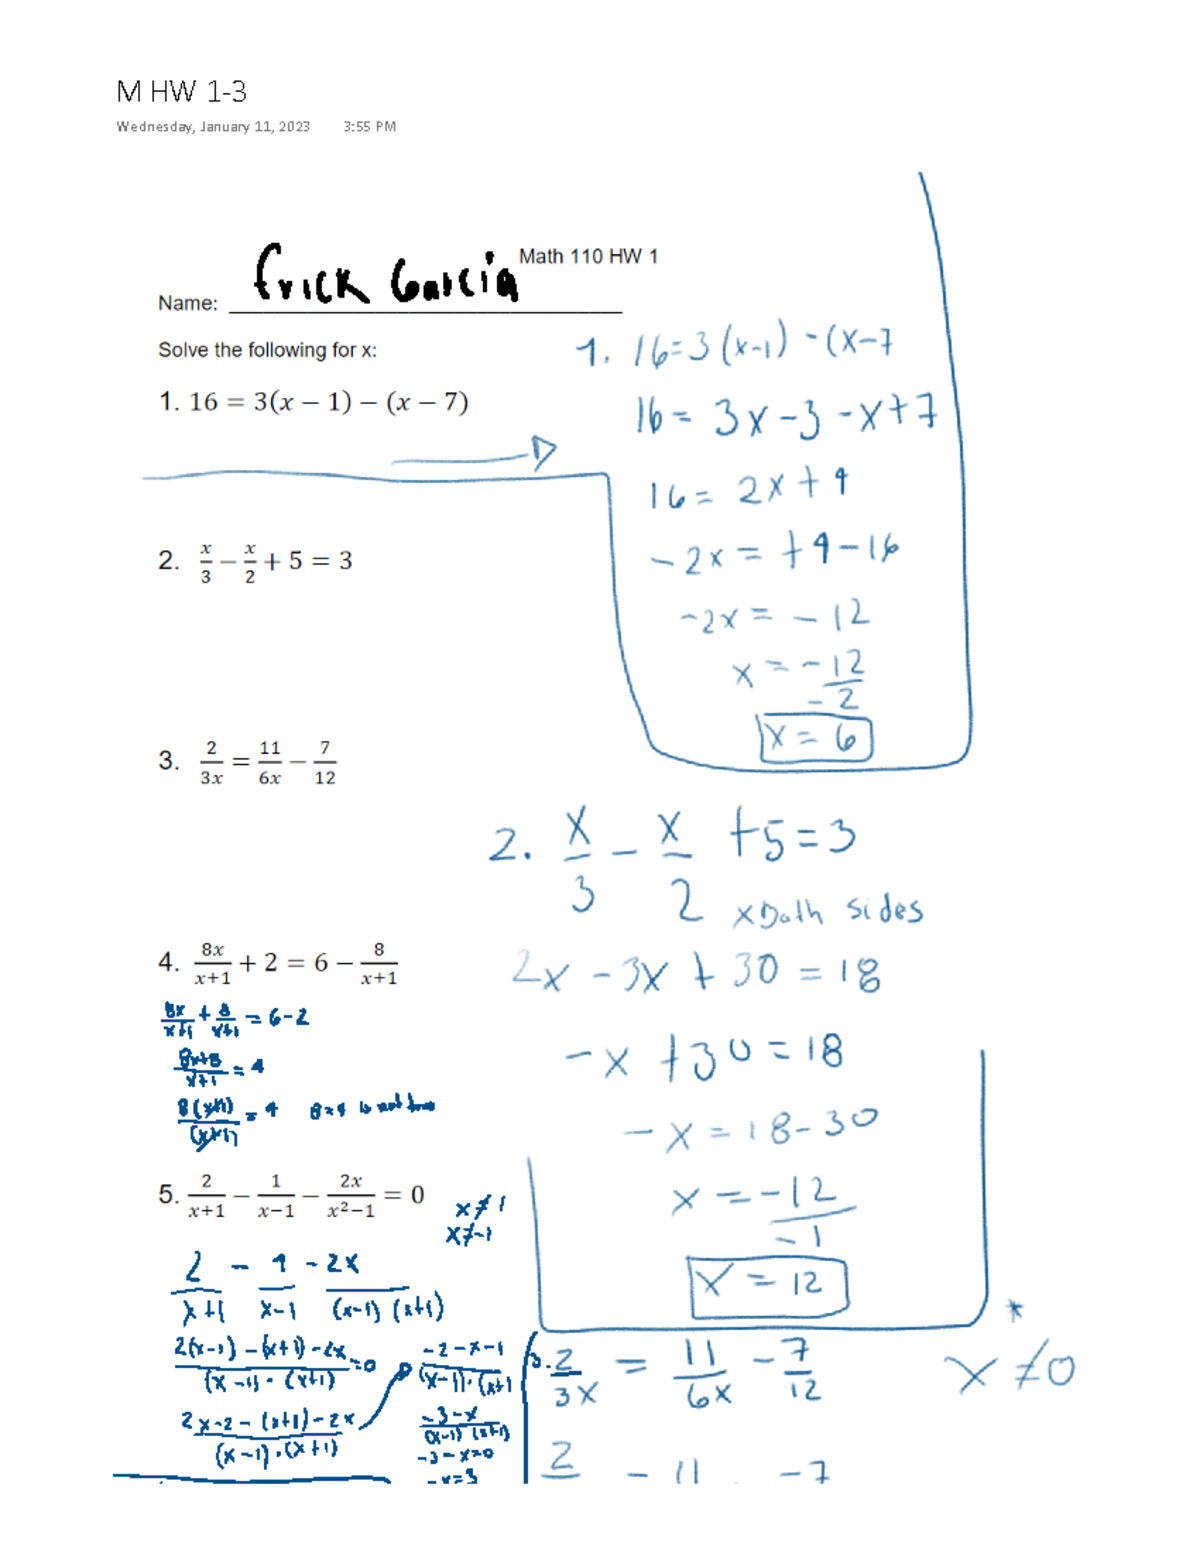 M HW 1-3
Wednesday, January 11, 2023 3:55 PM
Math 110 HW 1
Name: Erick Garcia
Solve the following for x:
1. 16 = 3(x − 1) − (x − 7)
1. 16=3(x-1) -(x-7
16= 3x-3-x+7
16= 2x+4
-2x = +4-16
-2x = -12
x = -12/-2
x = 6
2. x/3 − x/2 + 5 = 3
3. 2/3x = 11/6x − 7/12
2. x/3 - x/2 +5=3
x Both sides
2x -3x + 30 = 18
-x +30=18
-x =18-30
x = -12/-1
x = 12
4. 8x/x+1 + 2 = 6 − 8/x+1
8x/x+1 + 8/x+1 = 6-2
8x+8/x+1 = 4
8(x+1)/(x+1) = 4 8=4 is not true
5. 2/x+1 − 1/x−1 − 2x/x²−1 = 0
x≠1
x≠-1
2/x+1 - 1/x-1 - 2x/(x-1)(x+1)
2(x-1) -(x+1) -2x/(x-1)·(x+1) =0
2x-2-(x+1)-2x/(x-1)·(x+1)
-2-x-1/(x-1)·(x+1
-3-x/(x-1)(x+1)
-3-x=0
-x=3
3. 2/3x = 11/6x - 7/12
* x≠0
2 - 11 -7